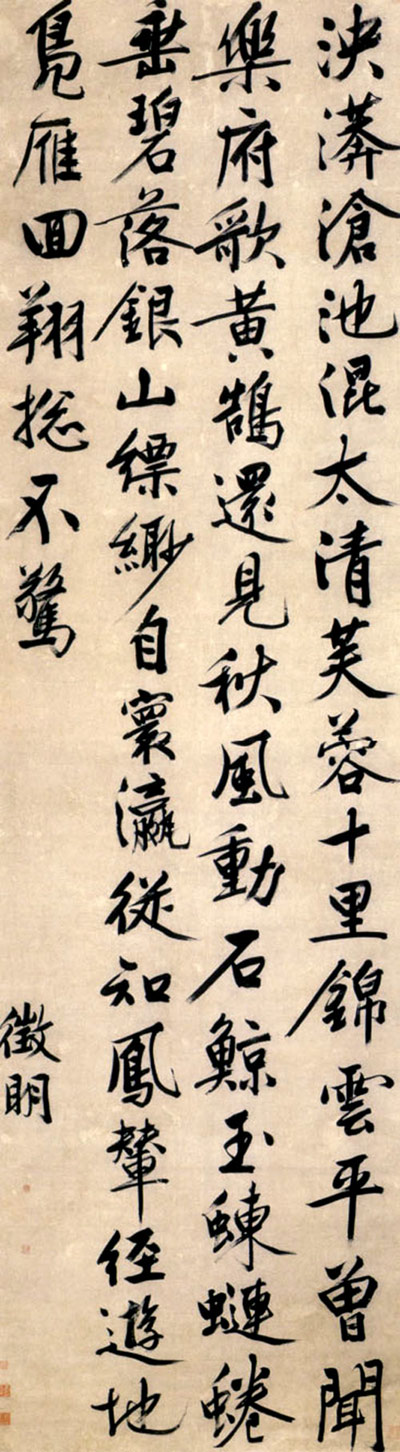 泱漭滄池混太清芙蓉十里錦雲平曾聞
樂府歌黃鵠還見秋風動石鯨玉蝀𧐖蜷
垂碧落銀山縹緲自寰瀛從知鳳輦經遊地
鳧雁囬翔捴不驚
徵明